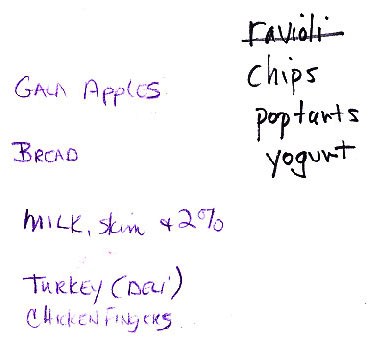 Gala Apples
Bread
Milk, skim & 2%
Turkey (Deli)
Chicken Fingers
ravioli
Chips
poptarts
yogurt